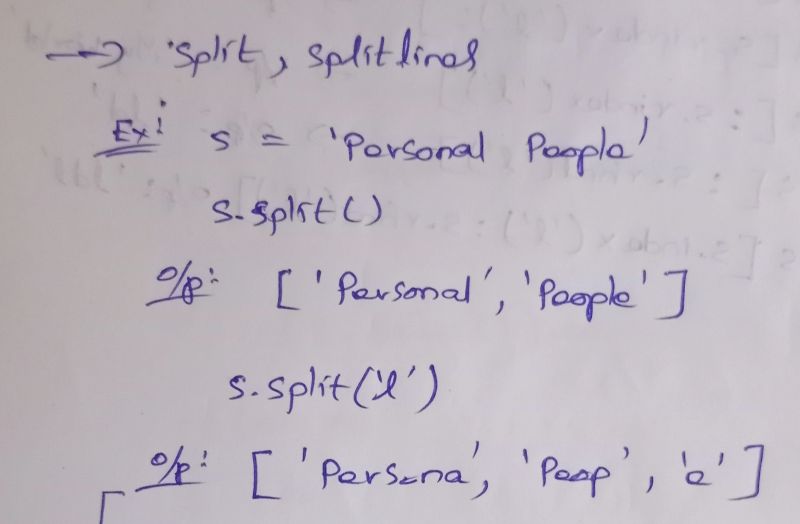 → split, splitlines
Ex: s = 'Personal People'
s.split()
o/p: ['Personal', 'People']
s.split('l')
o/p: ['Persona', 'Peop', 'e']